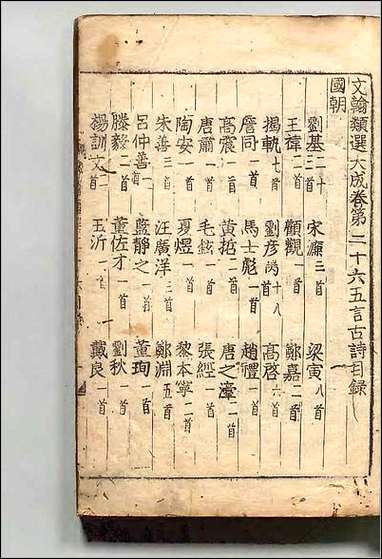 文翰類選大成卷第二十六五言古詩目録
國朝
劉基二十三首 宋濂三首 梁寅八首
王禕二首 顧觀一首 鄭嘉二首
揭軌七首 劉彥昺十八首 高啓六首
詹同一首 馬士彪一首 趙禮一首
高震一首 黃哲二首 唐之淳一首
唐肅二首 毛鉉一首 張經一首
陶安一首 夏煜一首 黎本寧二首
朱善三首 汪廣洋三首 鄭淵五首
呂仲善一首 藍靜之一首 董珣一首
滕毅二首 董佐才一首 劉秋一首
楊訓文一首 王沂一首 戴良一首